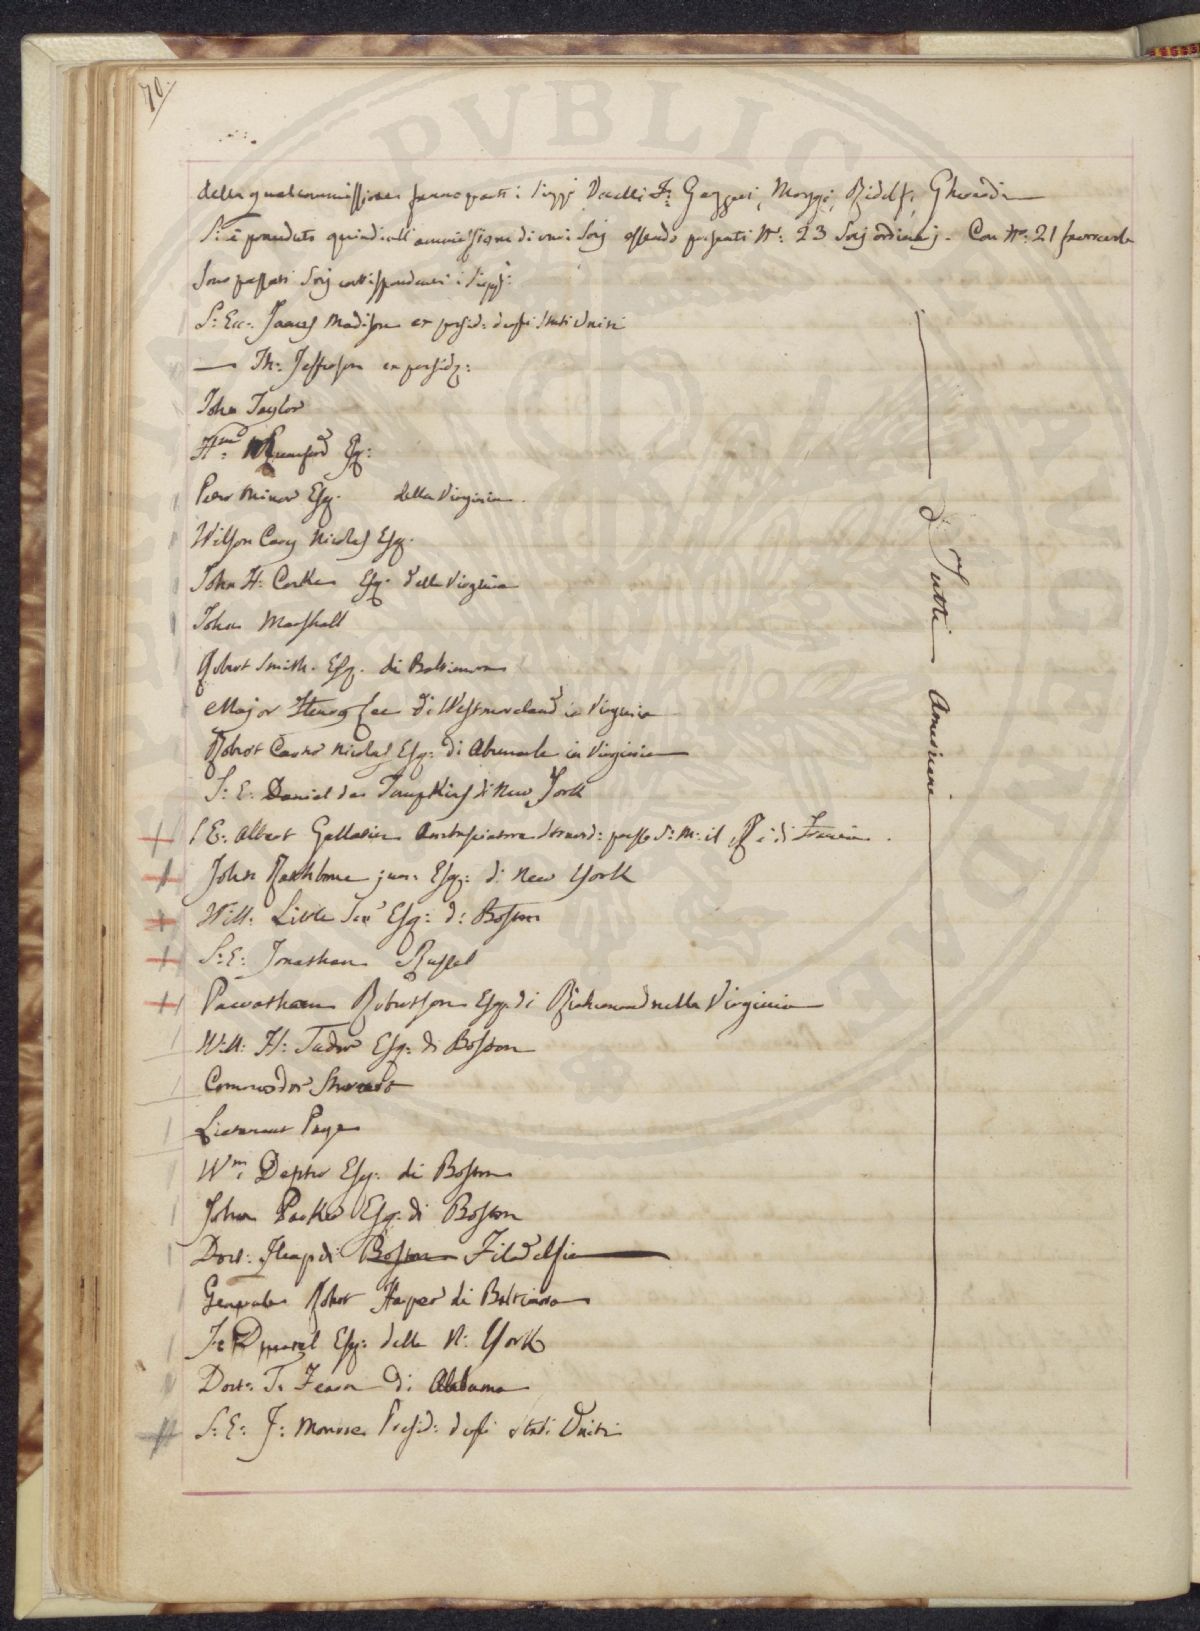 70.
della qual commissione fanno parte i Sigg.i Vaselli F: Gazzeri, Ridolfi, Gherardi
Si è proceduto quindi all'ammissione di vari Soci essendo presenti N.o: 23 Soci ordinarj. Con N.o: 21 favorevoli
Sono passati Socj corrispondenti i Sigg.i:
S: Ecc: James Madison ex presid: degli Stati Uniti
— Th: Jefferson ex presid:
John Taylor
Esq:
Peter Minor Esq. della Virginia.
Wilson Cary Nicolas Esq.
John H: Cocke Esq. della Virginia
John Marshall
Robert Smith. Esq. di Baltimora
Major Henry Lee di Westmoreland in Virginia
Robert Carter Nicolas Esq: di Abemarle in Virginia
S: E: Daniel Tompkins di New York
S E: Albert Gallatin Ambasciatore straord: presso S: M: il Re di Francia.
John Rathbone jun: Esq: di New York
Will: Little Sen.r Esq: di Boston
S: E: Jonathan Russel
Pawathan Robertson Esq. di Richmond nella Virginia
Will: H: Tudor Esq: di Boston
Commodor Stewart
Lieutenant Page
W.m Esq: di Boston
John Parker Esq. di Boston
Dott: di Boston Filadelfia
Generale Robert Harper di Baltimora
Esq: della N: York
Dott: T. Fearn di Alabama
S: E: J: Monroe Presid: degli Stati Uniti
Tutti Americani